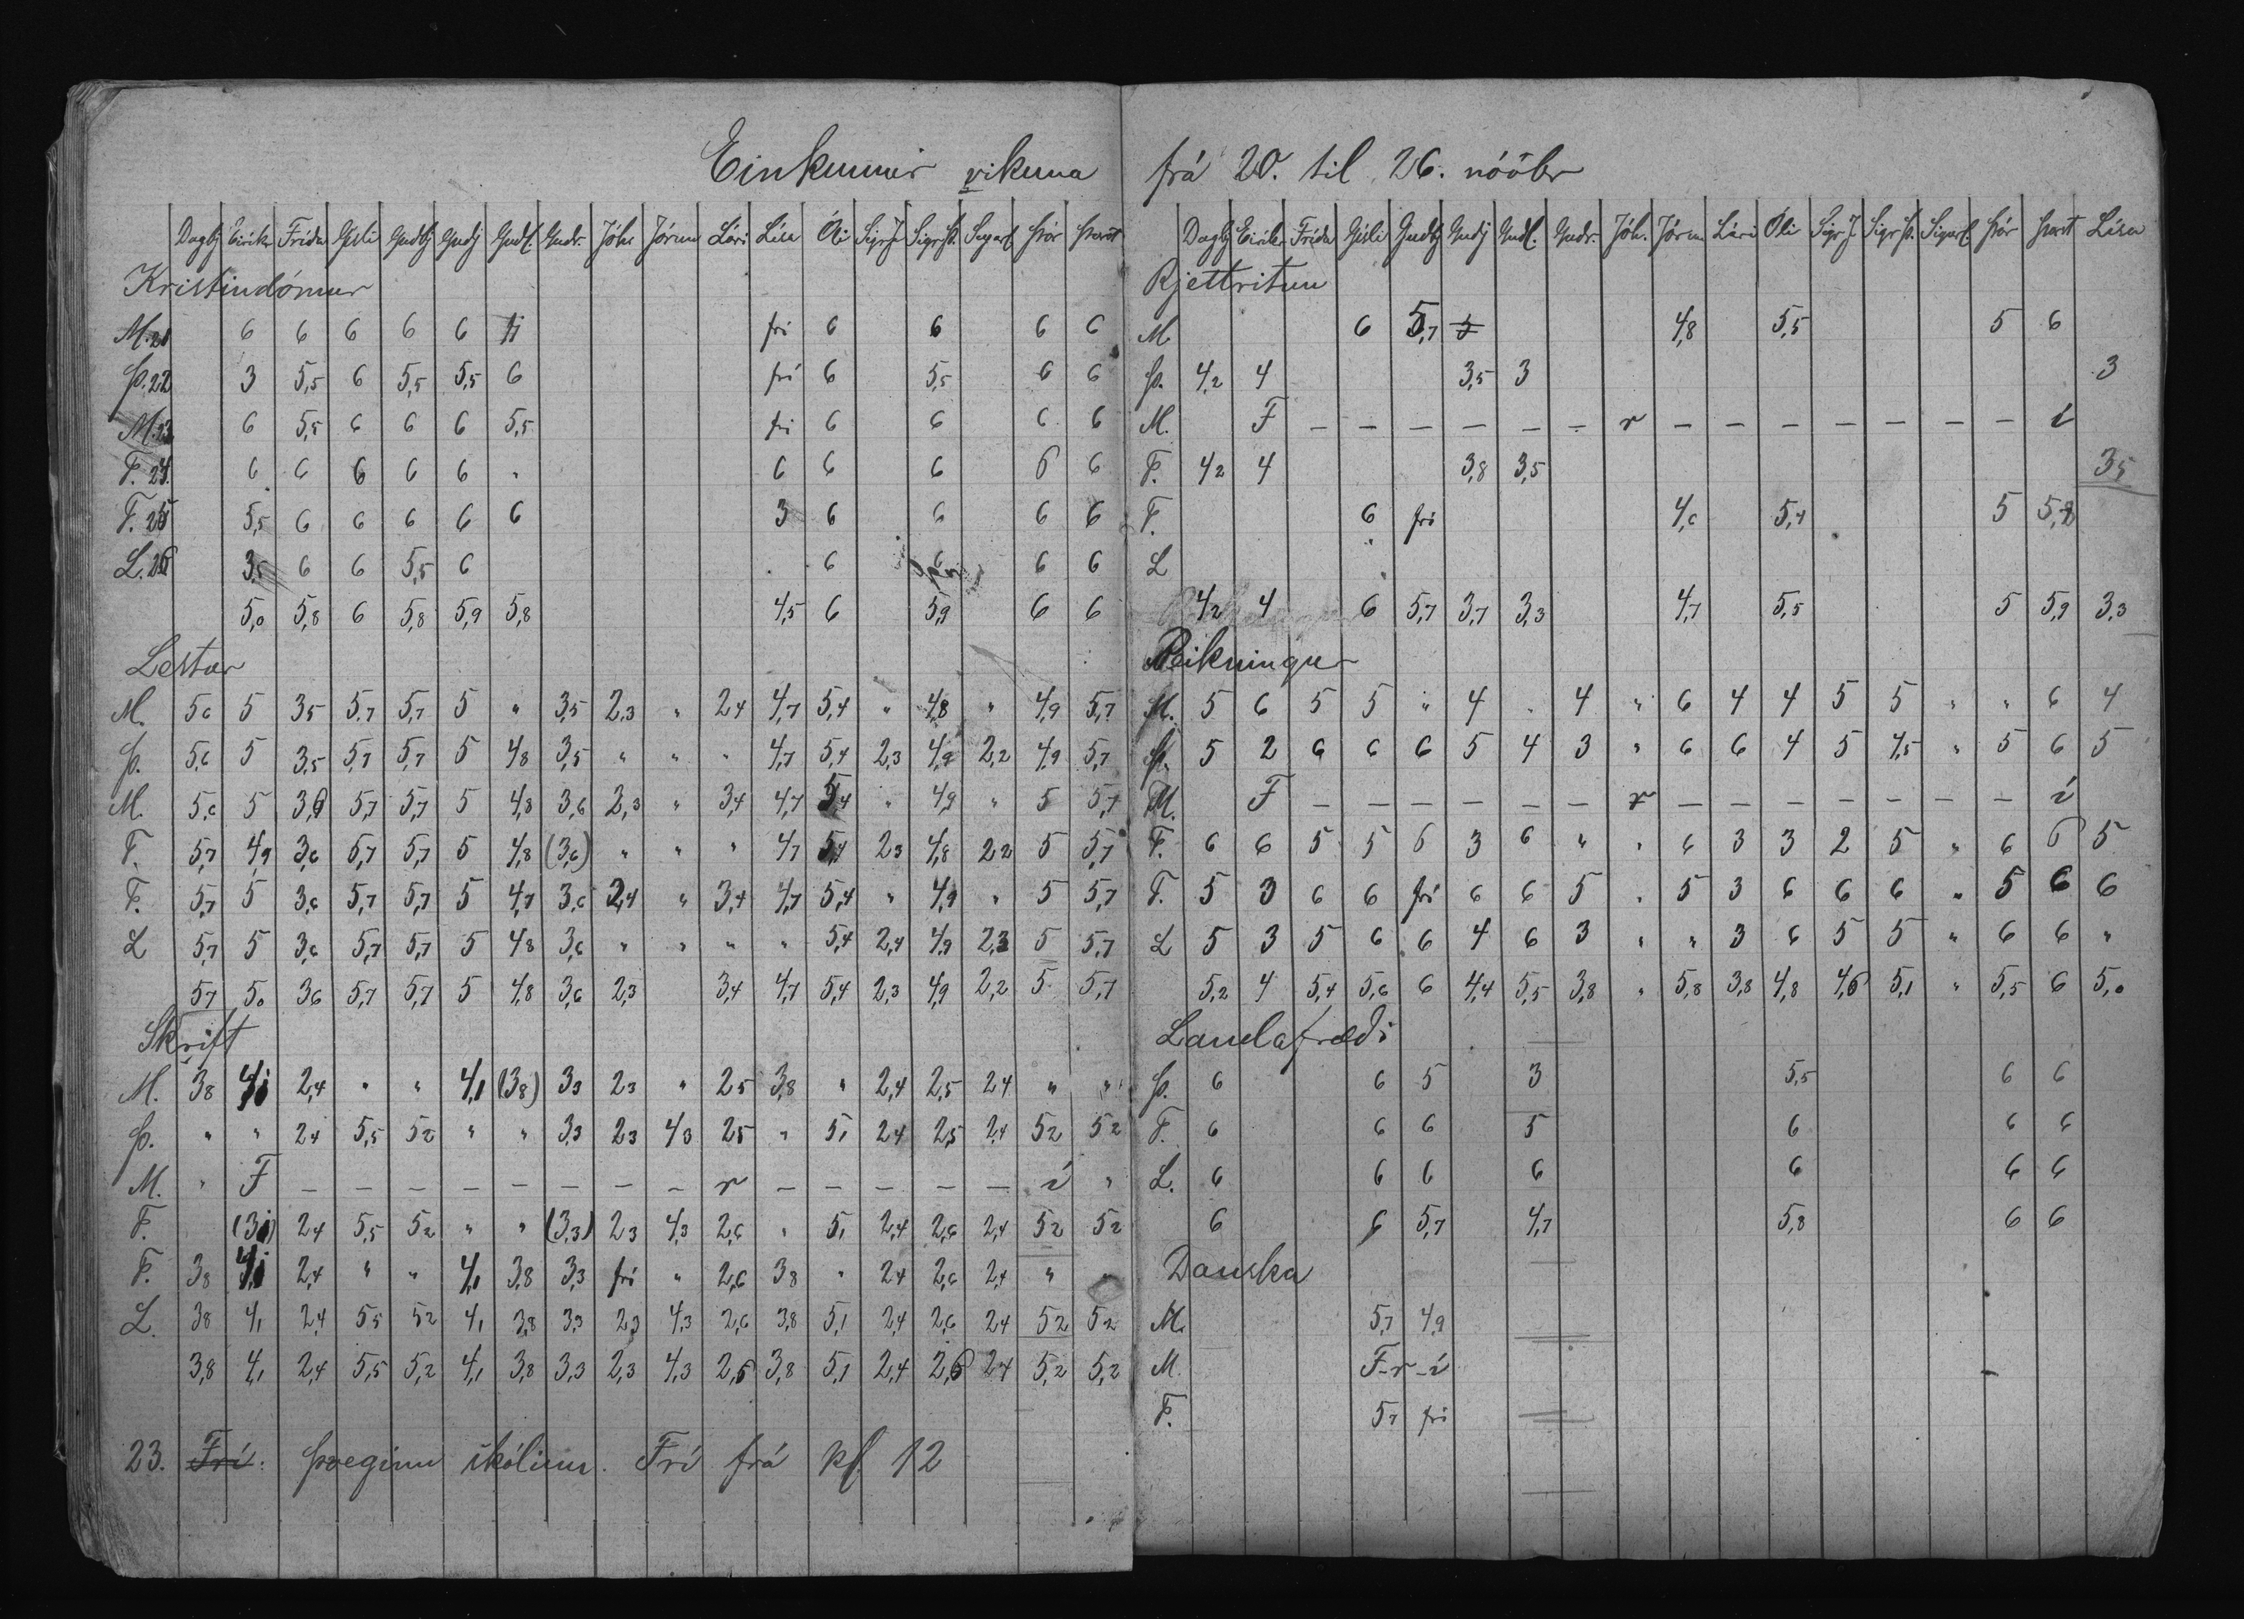 Einkunnir vikuna frá 20. til 26. nóvbr
Dagbj Eirika Frida Gísli Gudbj Gudj Gudl. Gudr. Jóhs Jórunn Lári Lísa Óli Sigr J Sigr Þ. Sigurl Þór Þorst
Kristindómur
M. 21 6 6 6 6 6 fri 6 6 6 6
Þ. 22 3 5,5 6 5,5 5,5 6 frí 6 5,5 6 6
M. 23 6 5,5 6 6 6 5,5 fri 6 6 6 6
F. 24. 6 6 6 6 6 " 6 6 6 6 6
F. 25 5,5 6 6 6 6 6 3 6 6 6 6
L. 26 3,5 6 6 5,5 6 6 6 6 6
5,0 5,8 6 5,8 5,9 5,8 4,5 6 5,9 6 6
Lestur
M. 5,6 5 3,5 5,7 5,7 5 " 3,5 2,3 " 2,4 4,7 5,4 " 4,8 " 4,9 5,7
Þ. 5,6 5 3,5 5,7 5,7 5 4,8 3,5 " " " 4,7 5,4 2,3 4,9 2,2 4,9 5,7
M. 5,6 5 3,6 5,7 5,7 5 4,8 3,6 2,3 " 3,4 4,7 5,4 " 4,9 " 5 5,7
F. 5,7 4,9 3,6 5,7 5,7 5 4,8 (3,6) " " " 4,7 5,4 2,3 4,8 2,2 5 5,7
F. 5,7 5 3,6 5,7 5,7 5 4,7 3,6 2,4 " 3,4 4,7 5,4 " 4,9 " 5 5,7
L 5,7 5 3,6 5,7 5,7 5 4,8 3,6 " " " " 5,4 2,4 4,9 2,3 5 5,7
5,7 5,0 3,6 5,7 5,7 5 4,8 3,6 2,3 3,4 4,7 5,4 2,3 4,9 2,2 5 5,7
Skrift
M. 3,8 4,1 2,4 " " 4,1 (3,8) 3,3 2,3 " 2,5 3,8 " 2,4 2,5 2,4 " "
Þ. " " 2,4 5,5 5,2 " " 3,3 2,3 4,3 2,5 " 5,1 2,4 2,5 2,4 5,2 5,2
M. " F – – – – – – – – r – – – – – í "
F. 2,4 5,5 5,2 " " (3,3) 2,3 4,3 2,6 " 5,1 2,4 2,6 2,4 5,2 5,2
F. 3,8 4,1 2,4 " " 4,1 3,8 3,3 frí " 2,6 3,8 " 2,4 2,6 2,4 " "
L. 3,8 4,1 2,4 5,5 5,2 4,1 3,8 3,3 2,3 4,3 2,6 3,8 5,1 2,4 2,6 2,4 5,2 5,2
3,8 4,1 2,4 5,5 5,2 4,1 3,8 3,3 2,3 4,3 2,6 3,8 5,1 2,4 2,6 2,4 5,2 5,2
23. Frí. þveginn skólinn. Frí frá kl. 12
Dagbj Eirika Frida Gísli Gudbj Gudj Gudl. Gudr. Jóh. Jórun Lári Óli Sigr J. Sigr Þ. Sigurl Þór Þorst Lísa
Rjettritun
M 6 5,7 5 4,8 5,5 5 6
Þ. 4,2 4 3,5 3 3
M. F – – – – – – r – – – – – – – í
F. 4,2 4 3,8 3,5 3,5
F. 6 frí 4,6 5,4 5 5,8
L
4,2 4 6 5,7 3,7 3,3 4,7 5,5 5 5,9 3,3
Reikningur
M. 5 6 5 5 " 4 " 4 " 6 4 4 5 5 " " 6 4
Þ. 5 2 6 6 6 5 4 3 " 6 6 4 5 4,5 " 5 6 5
M. F – – – – – – r – – – – – – – í
F. 6 6 5 5 6 3 6 " " 6 3 3 2 5 " 6 6 5
F. 5 3 6 6 frí 6 6 5 " 5 3 6 6 6 " 5 6 6
L 5 3 5 6 6 4 6 3 " " 3 6 5 5 " 6 6 "
5,2 4 5,4 5,6 6 4,4 5,5 3,8 " 5,8 3,8 4,8 4,6 5,1 " 5,5 6 5,0
Landafrædi
Þ. 6 6 5 3 5,5 6 6
F. 6 6 6 5 6 6 6
L. 6 6 6 6 6 6 6
6 6 5,7 4,7 5,8 6 6
Danska
M. 5,7 4,9
M. F-r-í
F. 5,7 frí